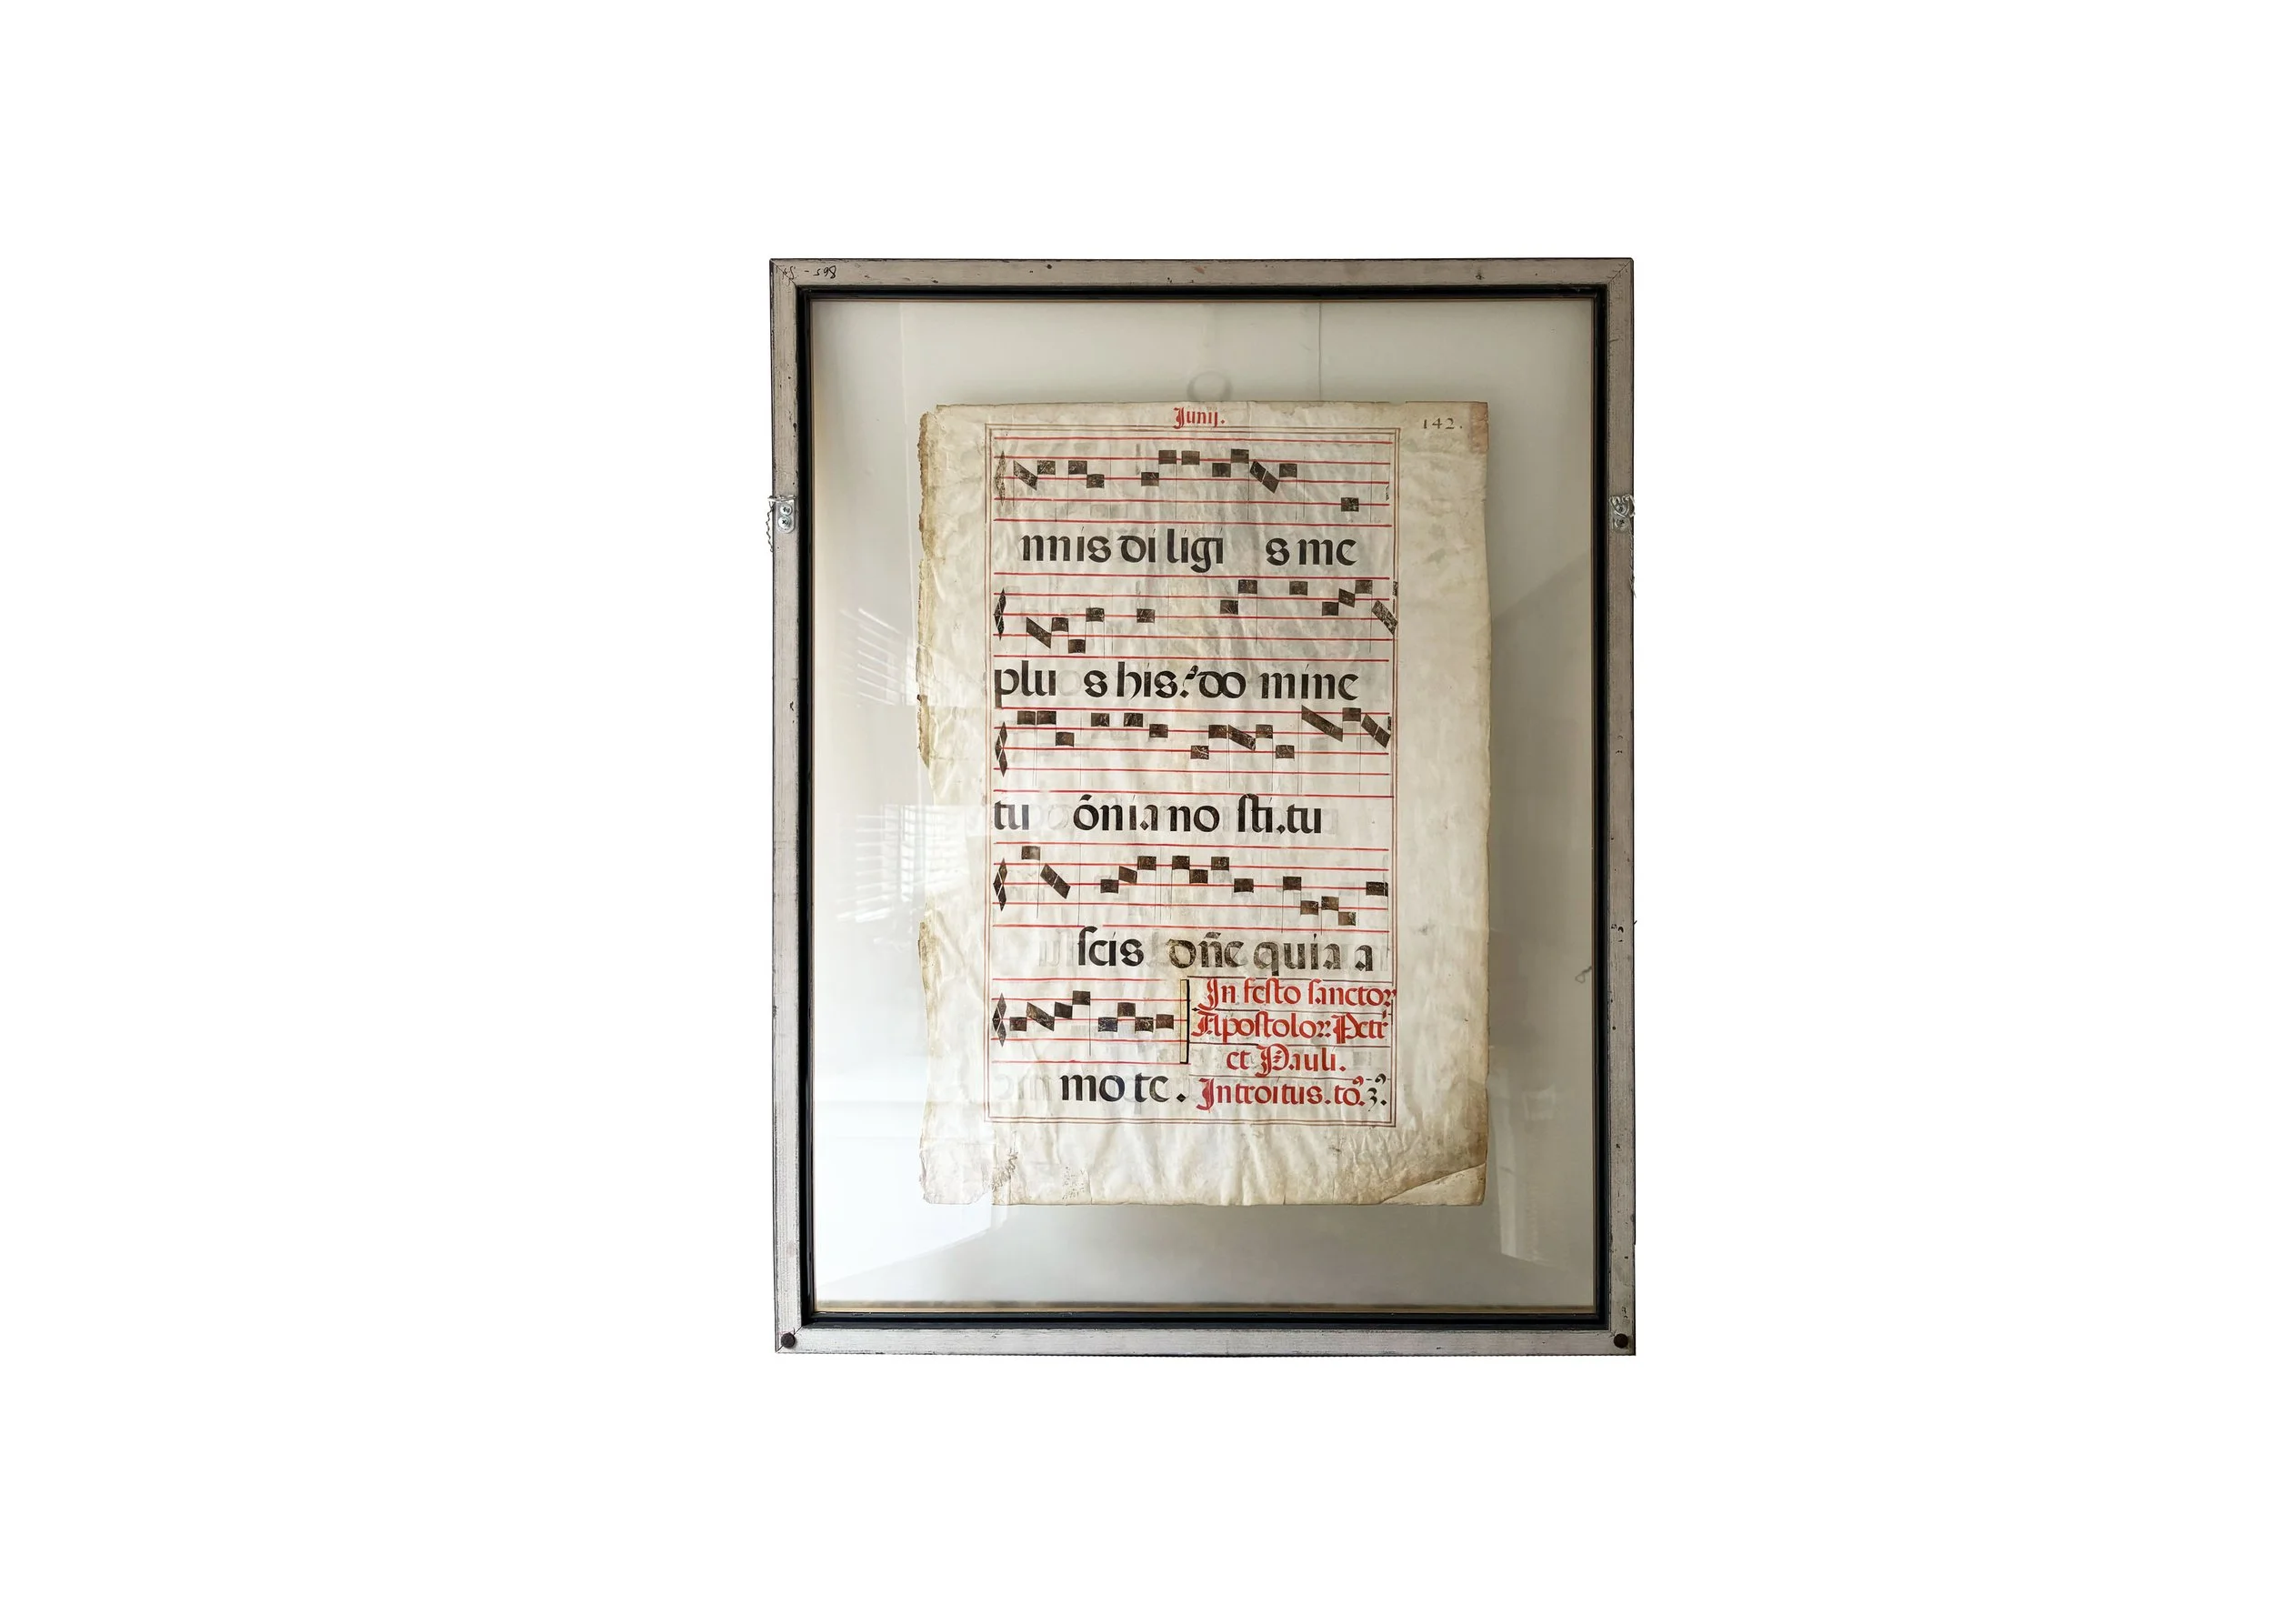 Junij.
142.
nnis diligi s me
plu s his: do mine
tu ōnia no sti. tu
scis dñe quia a
mo te.
In festo sanctoꝝ
Apostoloꝝ Petri
et Pauli.
Introitus. to. 3.